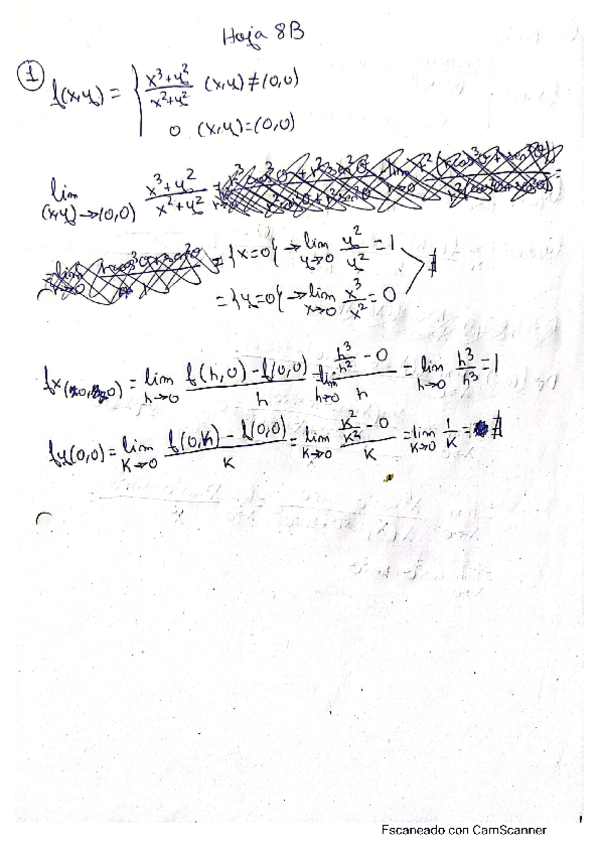 Hoja 8B
① f(x,y) = { x³+y² / x²+y² (x,y)≠(0,0)
0 (x,y)=(0,0)
lim (x,y)→(0,0) x³+y² / x²+y² =
= {x=0} → lim y→0 y²/y² = 1
∄
= {y=0} → lim x→0 x³/x² = 0
fx(0,0) = lim h→0 f(h,0) - f(0,0) / h = lim h→0 h³/h² - 0 / h = lim h→0 h³/h³ = 1
fy(0,0) = lim k→0 f(0,k) - f(0,0) / k = lim k→0 k²/k² - 0 / k = lim k→0 1/k = ∄
Escaneado con CamScanner